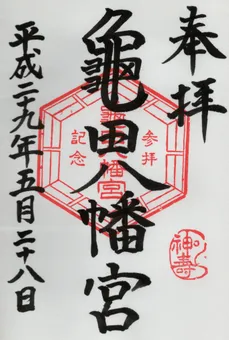 奉拝
龜田八幡宮
平成二十九年五月二十八日
参拝
記念
龜田八幡宮
神壽